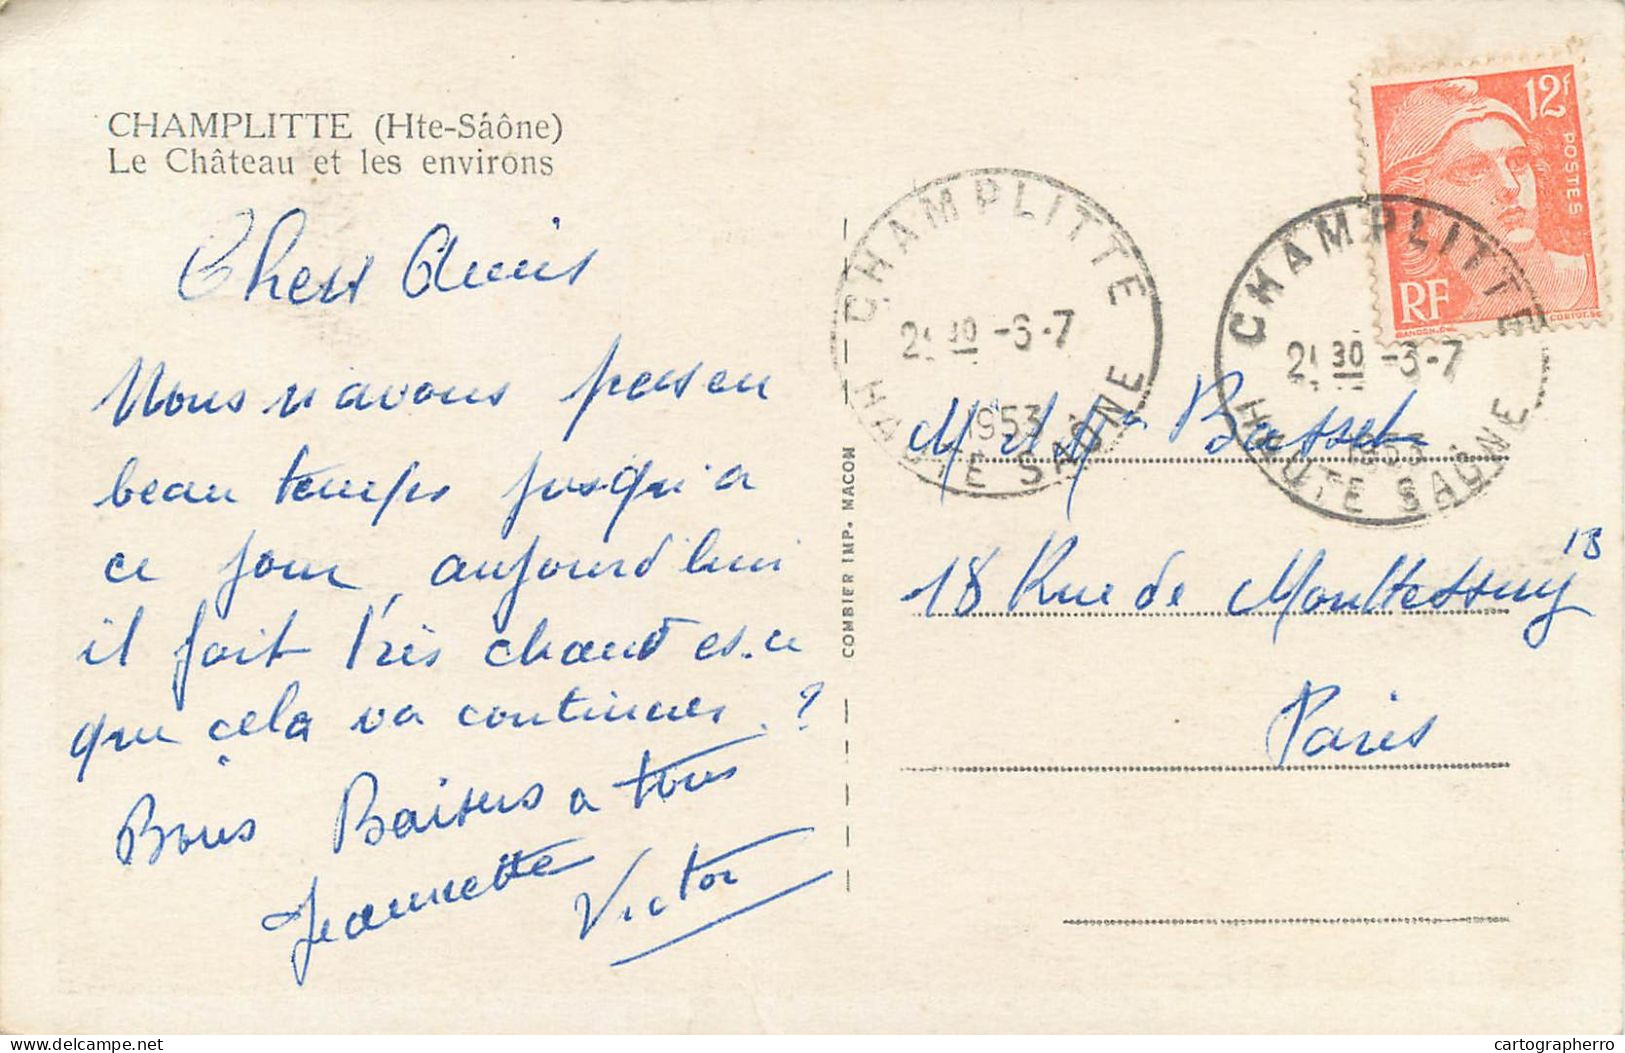 CHAMPLITTE (Hte-Saône)
Le Château et les environs
Chers Amis
Nous n'avons pas eu
beau temps jusqu'a
ce jour aujourd'hui
il fait très chaud es-ce
que cela va continuer. ?
Bons Baisers a tous
Jeannette
Victor
COMBIER IMP. MACON
CHAMPLITTE
30 -6-7
1953
HAUTE SAONE
CHAMPLITTE
30 -6-7
1953
HAUTE SAONE
12F
POSTES
RF
GANDON.DEL
CORTOT.SC
Mr et Mme Basset
18 Rue de Monttessuy
Paris
delcampe.net
cartographerro